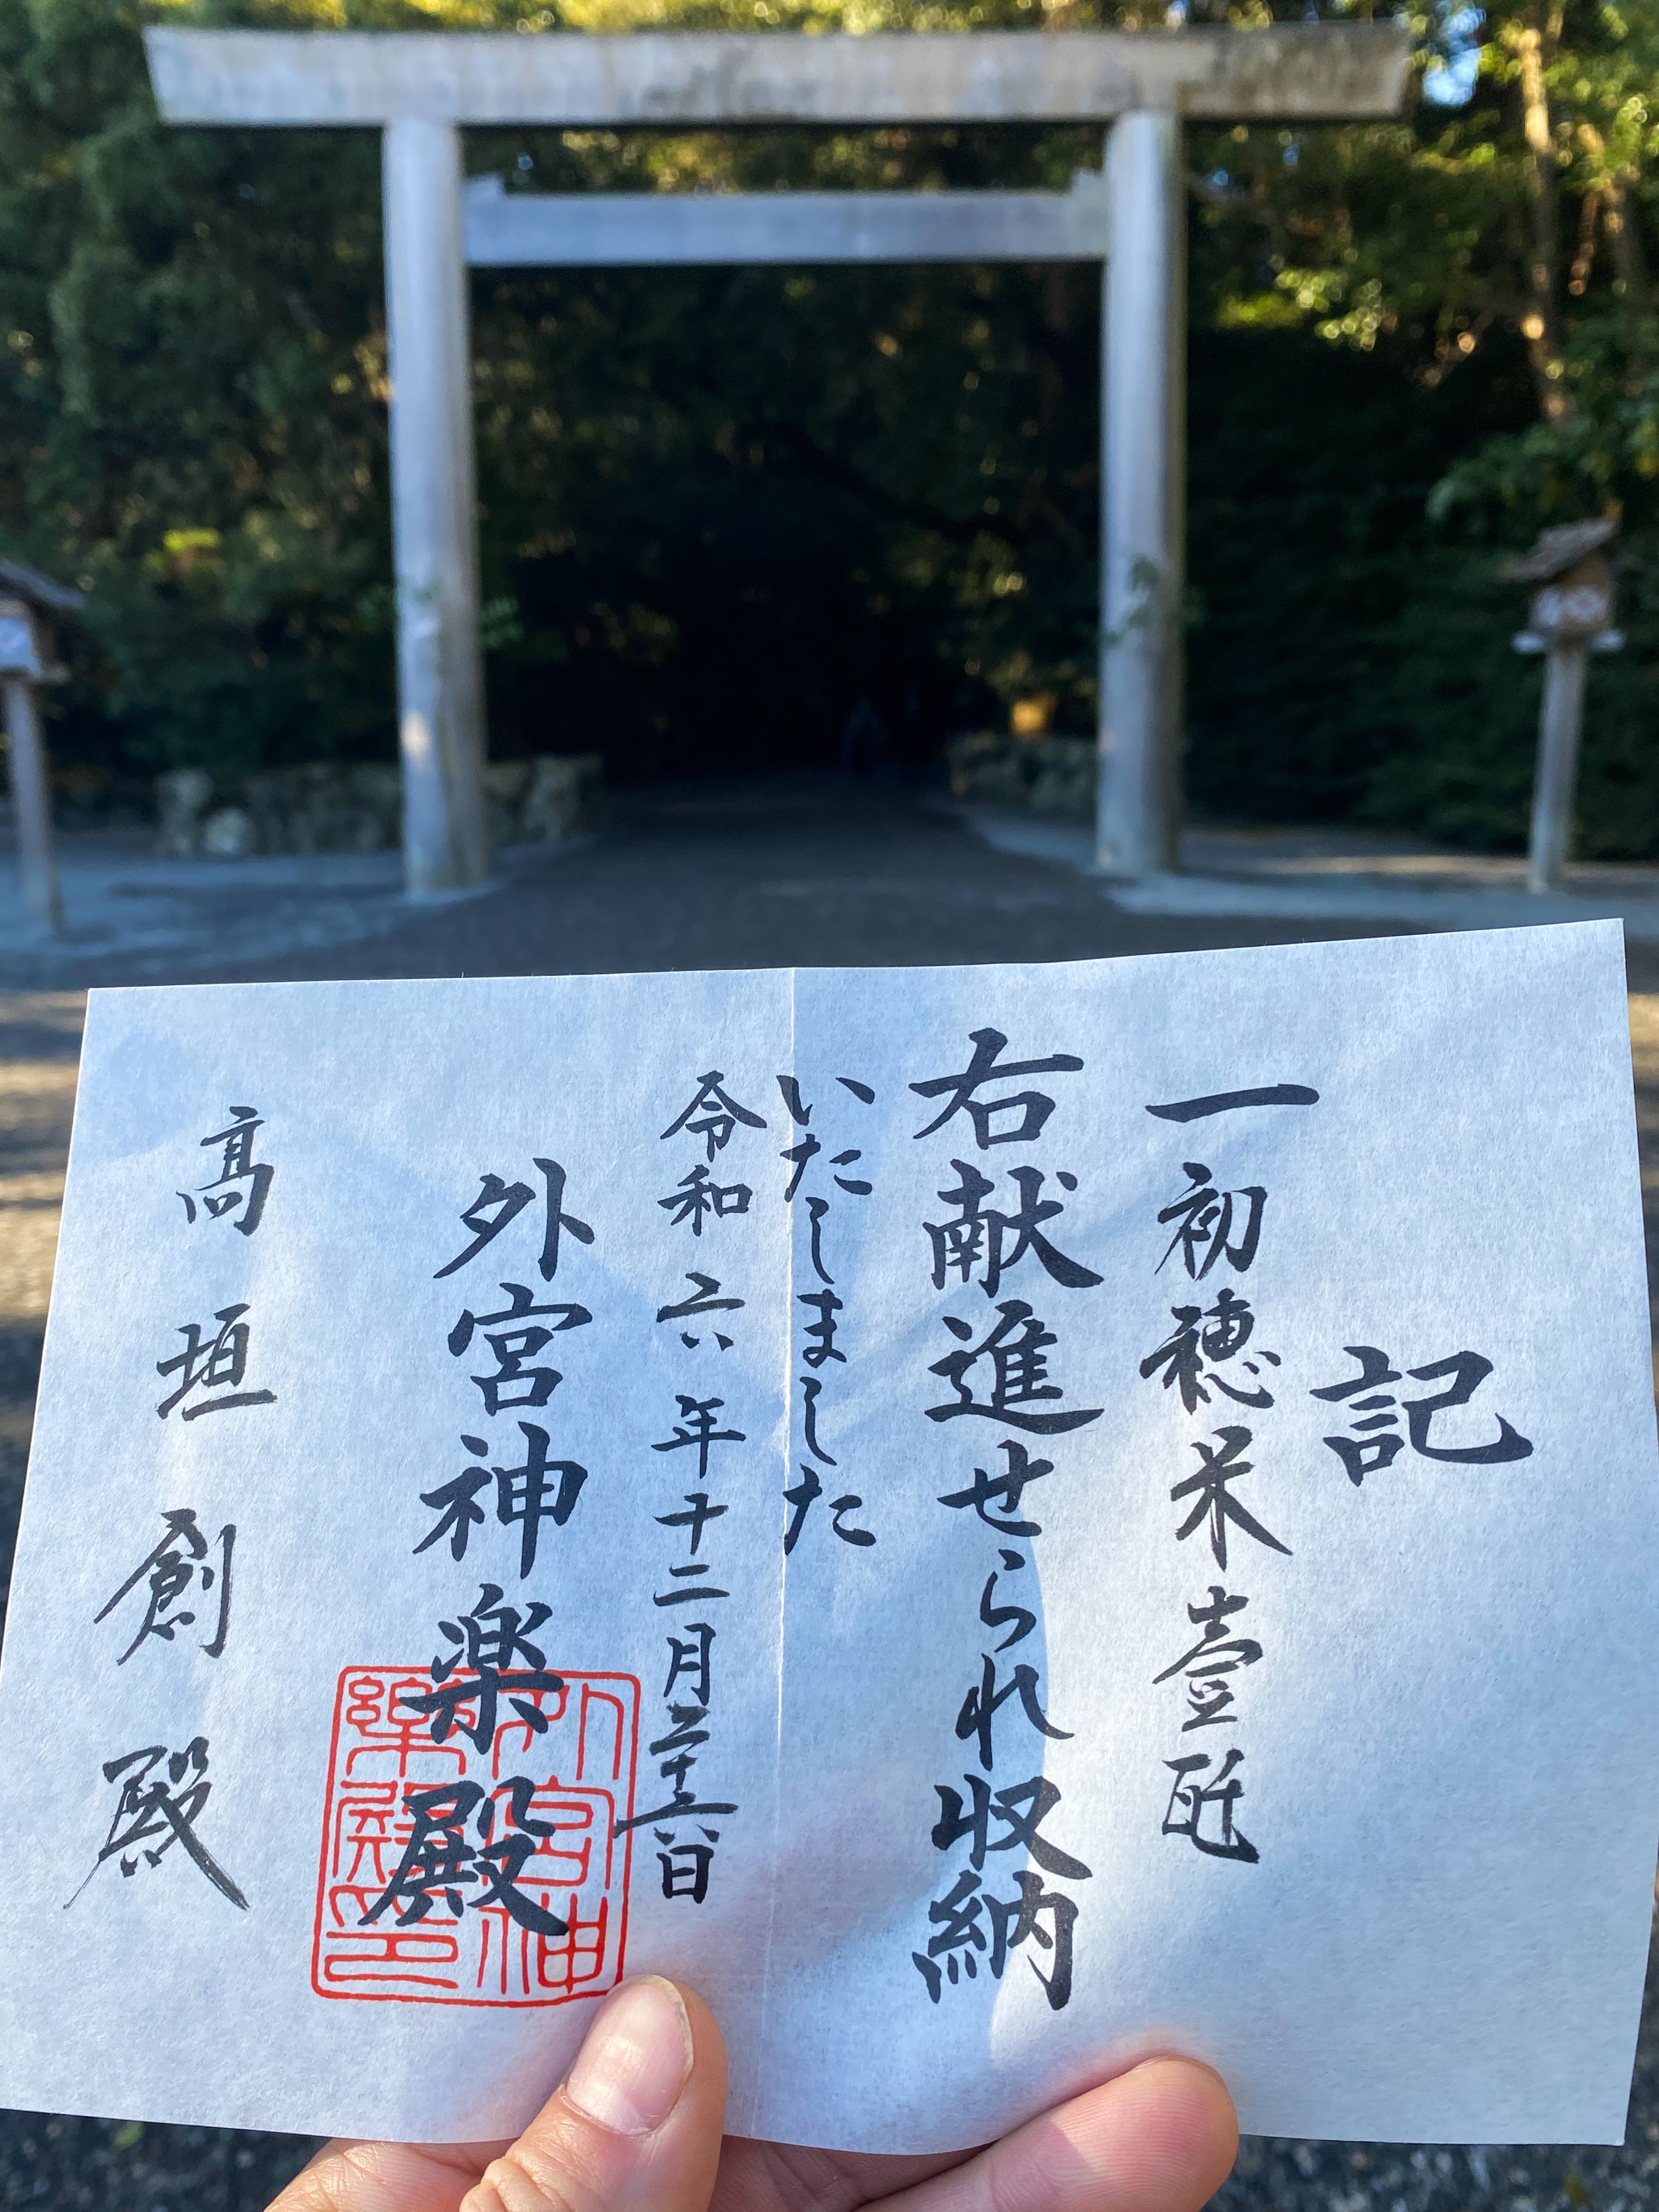 記
一初穂米壹瓩
右献進せられ収納
いたしました
令和六年十二月二十六日
外宮神楽殿
外宮神樂殿印
髙垣創殿